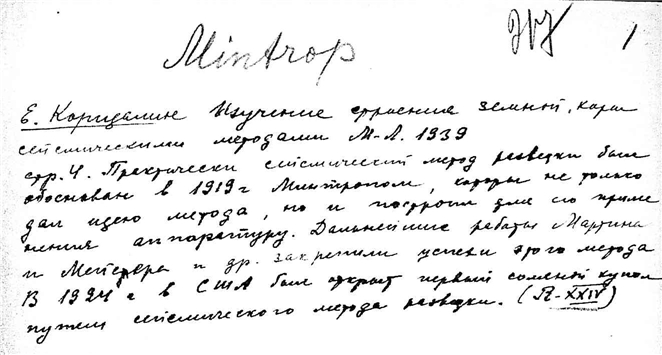 Mintrop 1
Е. Коридалин Изучение строения земной коры
сейсмическими методами М-Л. 1939
стр. 4. Практически сейсмический метод разведки был
обоснован в 1919 г Минтропом, который не только
дал идею метода, но и построил для его приме
нения аппаратуру. Дальнейшие работы Мартина
и др. закрепили успехи этого метода
В 1924 г в США был открыт первый соляной купол
путем сейсмического метода разведки. (Я-XXIV)